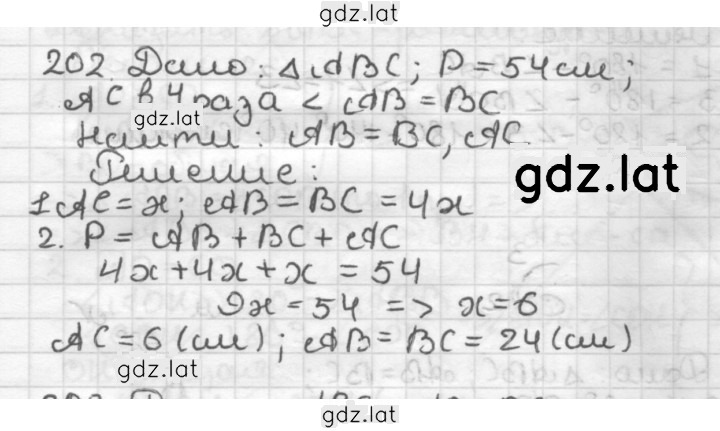 gdz.lat
202. Дано: △ABC; P=54см;
AC в 4 раза < AB=BC
gdz.lat
Найти: AB=BC, AC.
Решение:
gdz.lat
1. AC=x; AB=BC=4x
2. P=AB+BC+AC
4x+4x+x=54
9x=54 => x=6
AC=6(см); AB=BC=24(см)
gdz.lat
gdz.lat